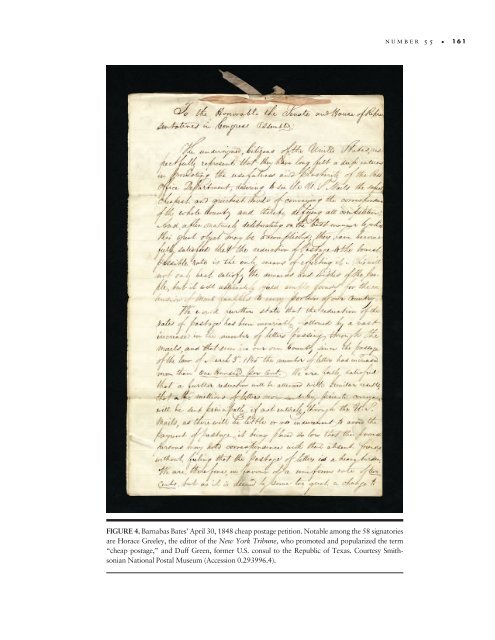 NUMBER 55 • 161
To the Honorable the Senate and House of Repre
sentatives in Congress Assembled
The undersigned, Citizens of the United States, res
pectfully represent that they have long felt a deep interest
in promoting the usefulness and prosperity of the Post
Office Department, desiring to see the U. S. Mails the
cheapest and quickest mode of conveying the correspondence
of the whole Country and thereby defying all competition.
And after maturely deliberating on the best manner by which
this great object may be accomplished, they have become
fully satisfied that the reduction of postage to the lowest
possible rate is the only means of effecting it.
not only best satisfy the and wishes of the peo
ple, but it will ultimately yield ample for the
of Mail facilities to every portion of our Country.
We would further state that the reduction of the
rates of postage has been invariably followed by a vast
increase in the number of letters passing through the
mails, and that even in our own Country, since the passage
of the law of March 3d. 1845 the number of letters has increased
more than one hundred per cent. We are fully satisfied
that a further reduction will be attended with similar results,
that the millions of letters now sent by private conveyance
will be sent principally, if not entirely, through the U. S.
Mails, as there will be little or no inducement to avoid the
payment of postage, it being placed so low that the
persons may correspondence with their absent friends
without feeling that the postage of letters is a heavy burden.
We are, therefore, in favour of a uniform rate of two
Cents, but as it is deemed by some too great a change to
FIGURE 4. Barnabas Bates’ April 30, 1848 cheap postage petition. Notable among the 58 signatories
are Horace Greeley, the editor of the New York Tribune, who promoted and popularized the term
“cheap postage,” and Duff Green, former U.S. consul to the Republic of Texas. Courtesy Smith-
sonian National Postal Museum (Accession 0.293996.4).